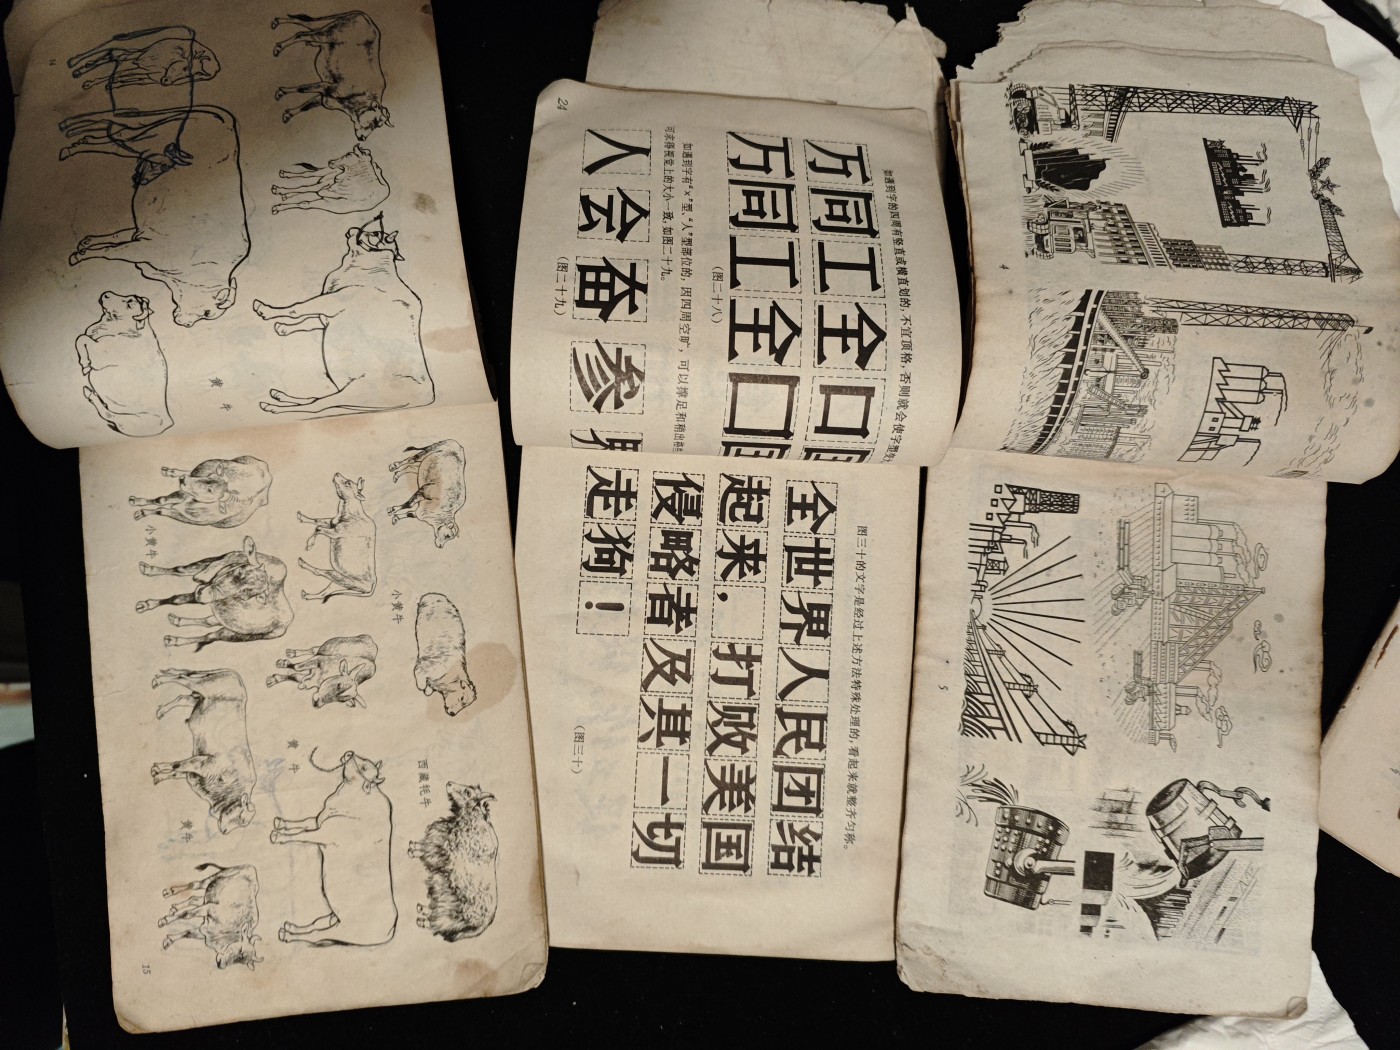 14
黄 牛
西藏牦牛
小黄牛
黄 牛
小黄牛
黄牛
15
如遇到字的四周有竖直或横直划的，不宜顶格，否则就会使字型
万同工全口国
万同工全口国
（图二十八）
如遇到字有“×”型、“人”型部位的，因四周空旷，可以撑足和稍出格
可求得视觉上的大小一致，如图二十九。
人会奋参
（图二十九）
24
图三十的文字是经过上述方法特殊处理的，看起来就整齐匀称。
全世界人民团结
起来，打败美国
侵略者及其一切
走狗！
（图三十）
4
5